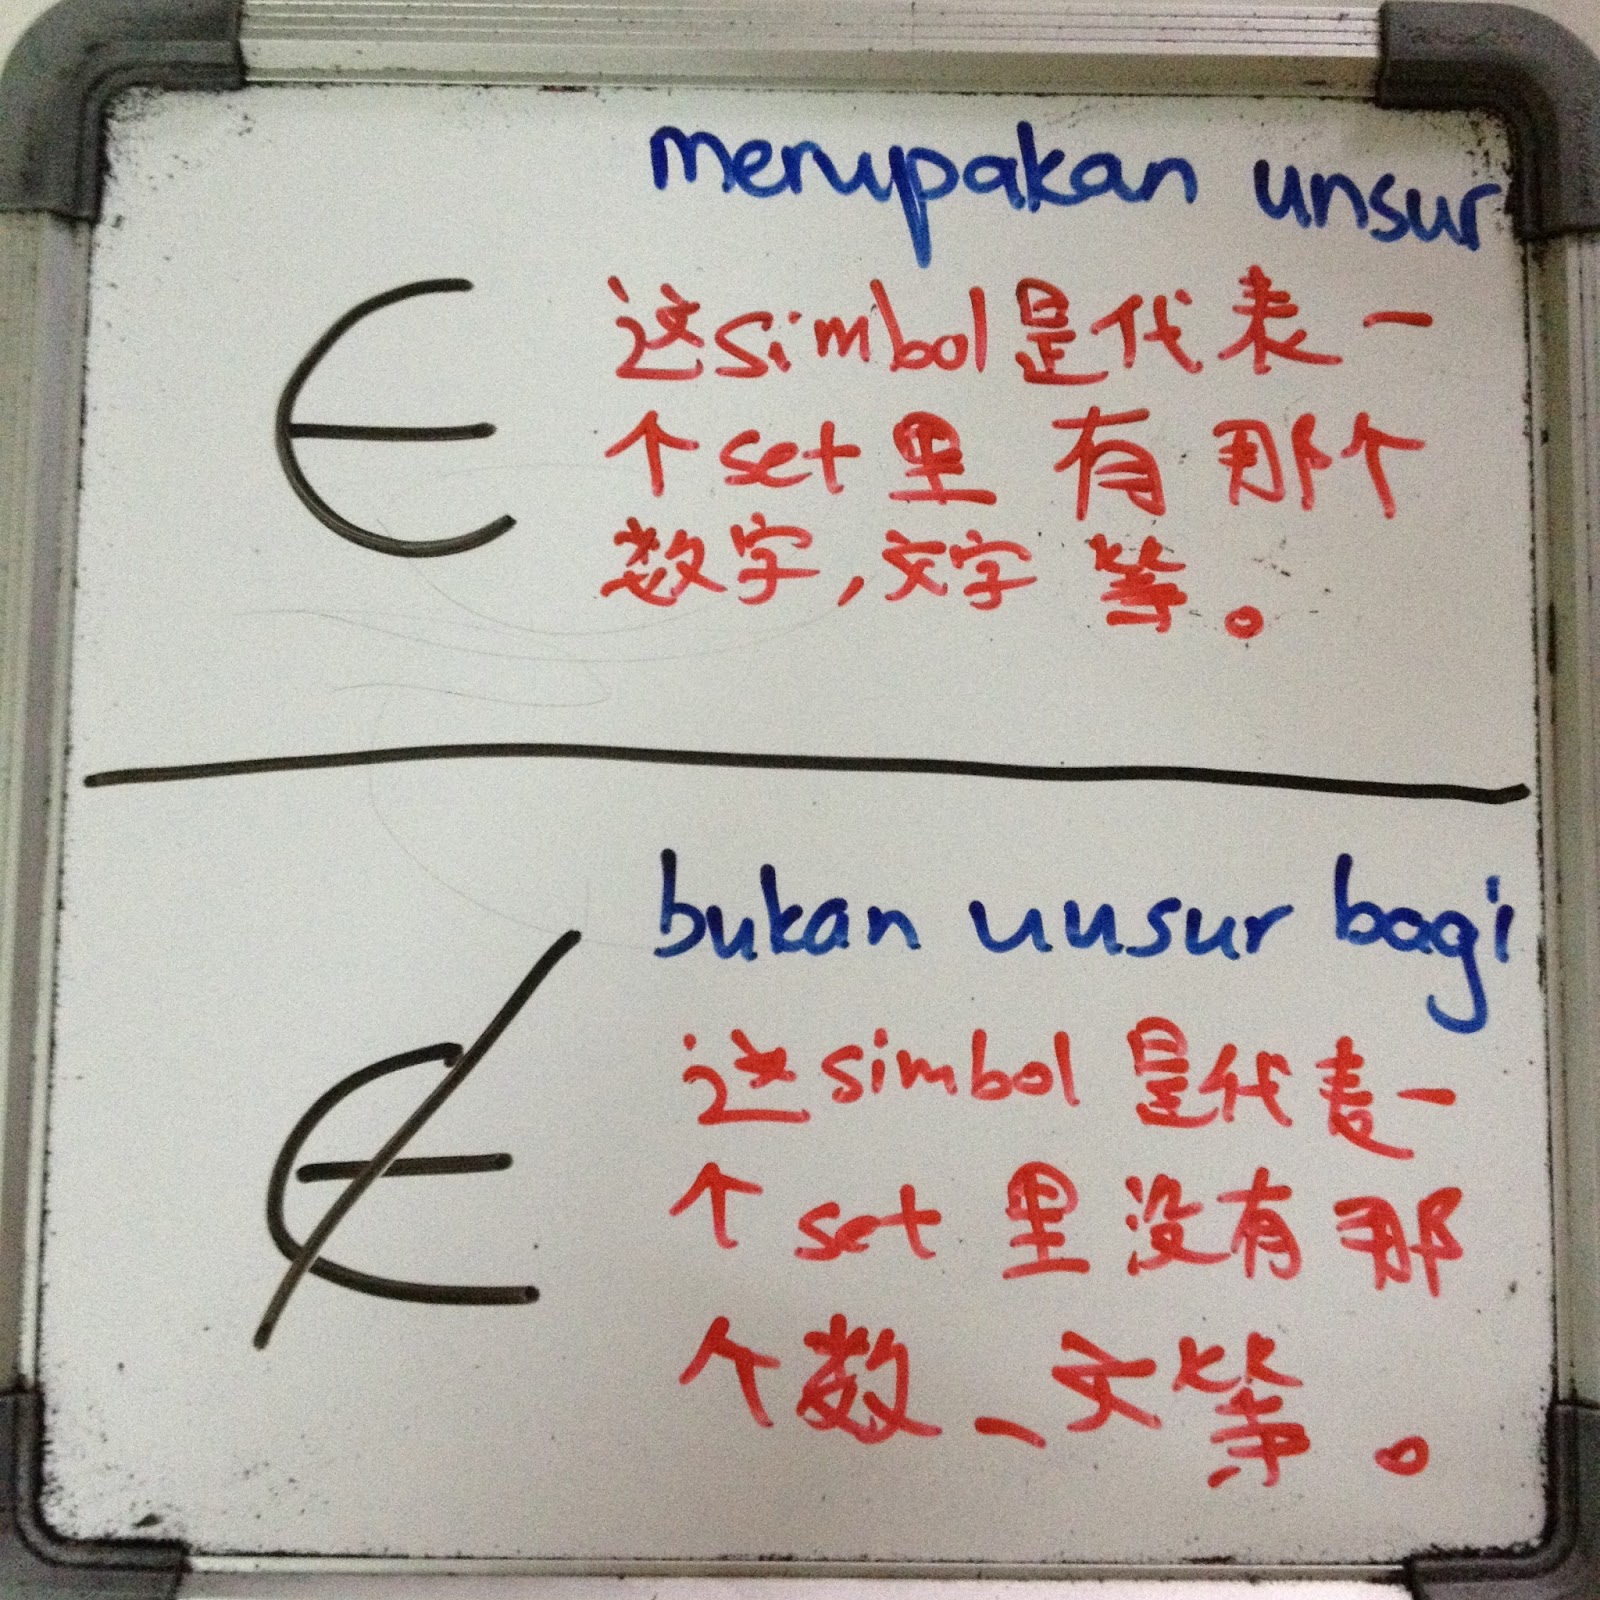 merupakan unsur
∈
这simbol是代表一
个set里有那个
数字,文字等。
bukan unsur bagi
∉
这simbol是代表一
个set里没有那
个数、文等。